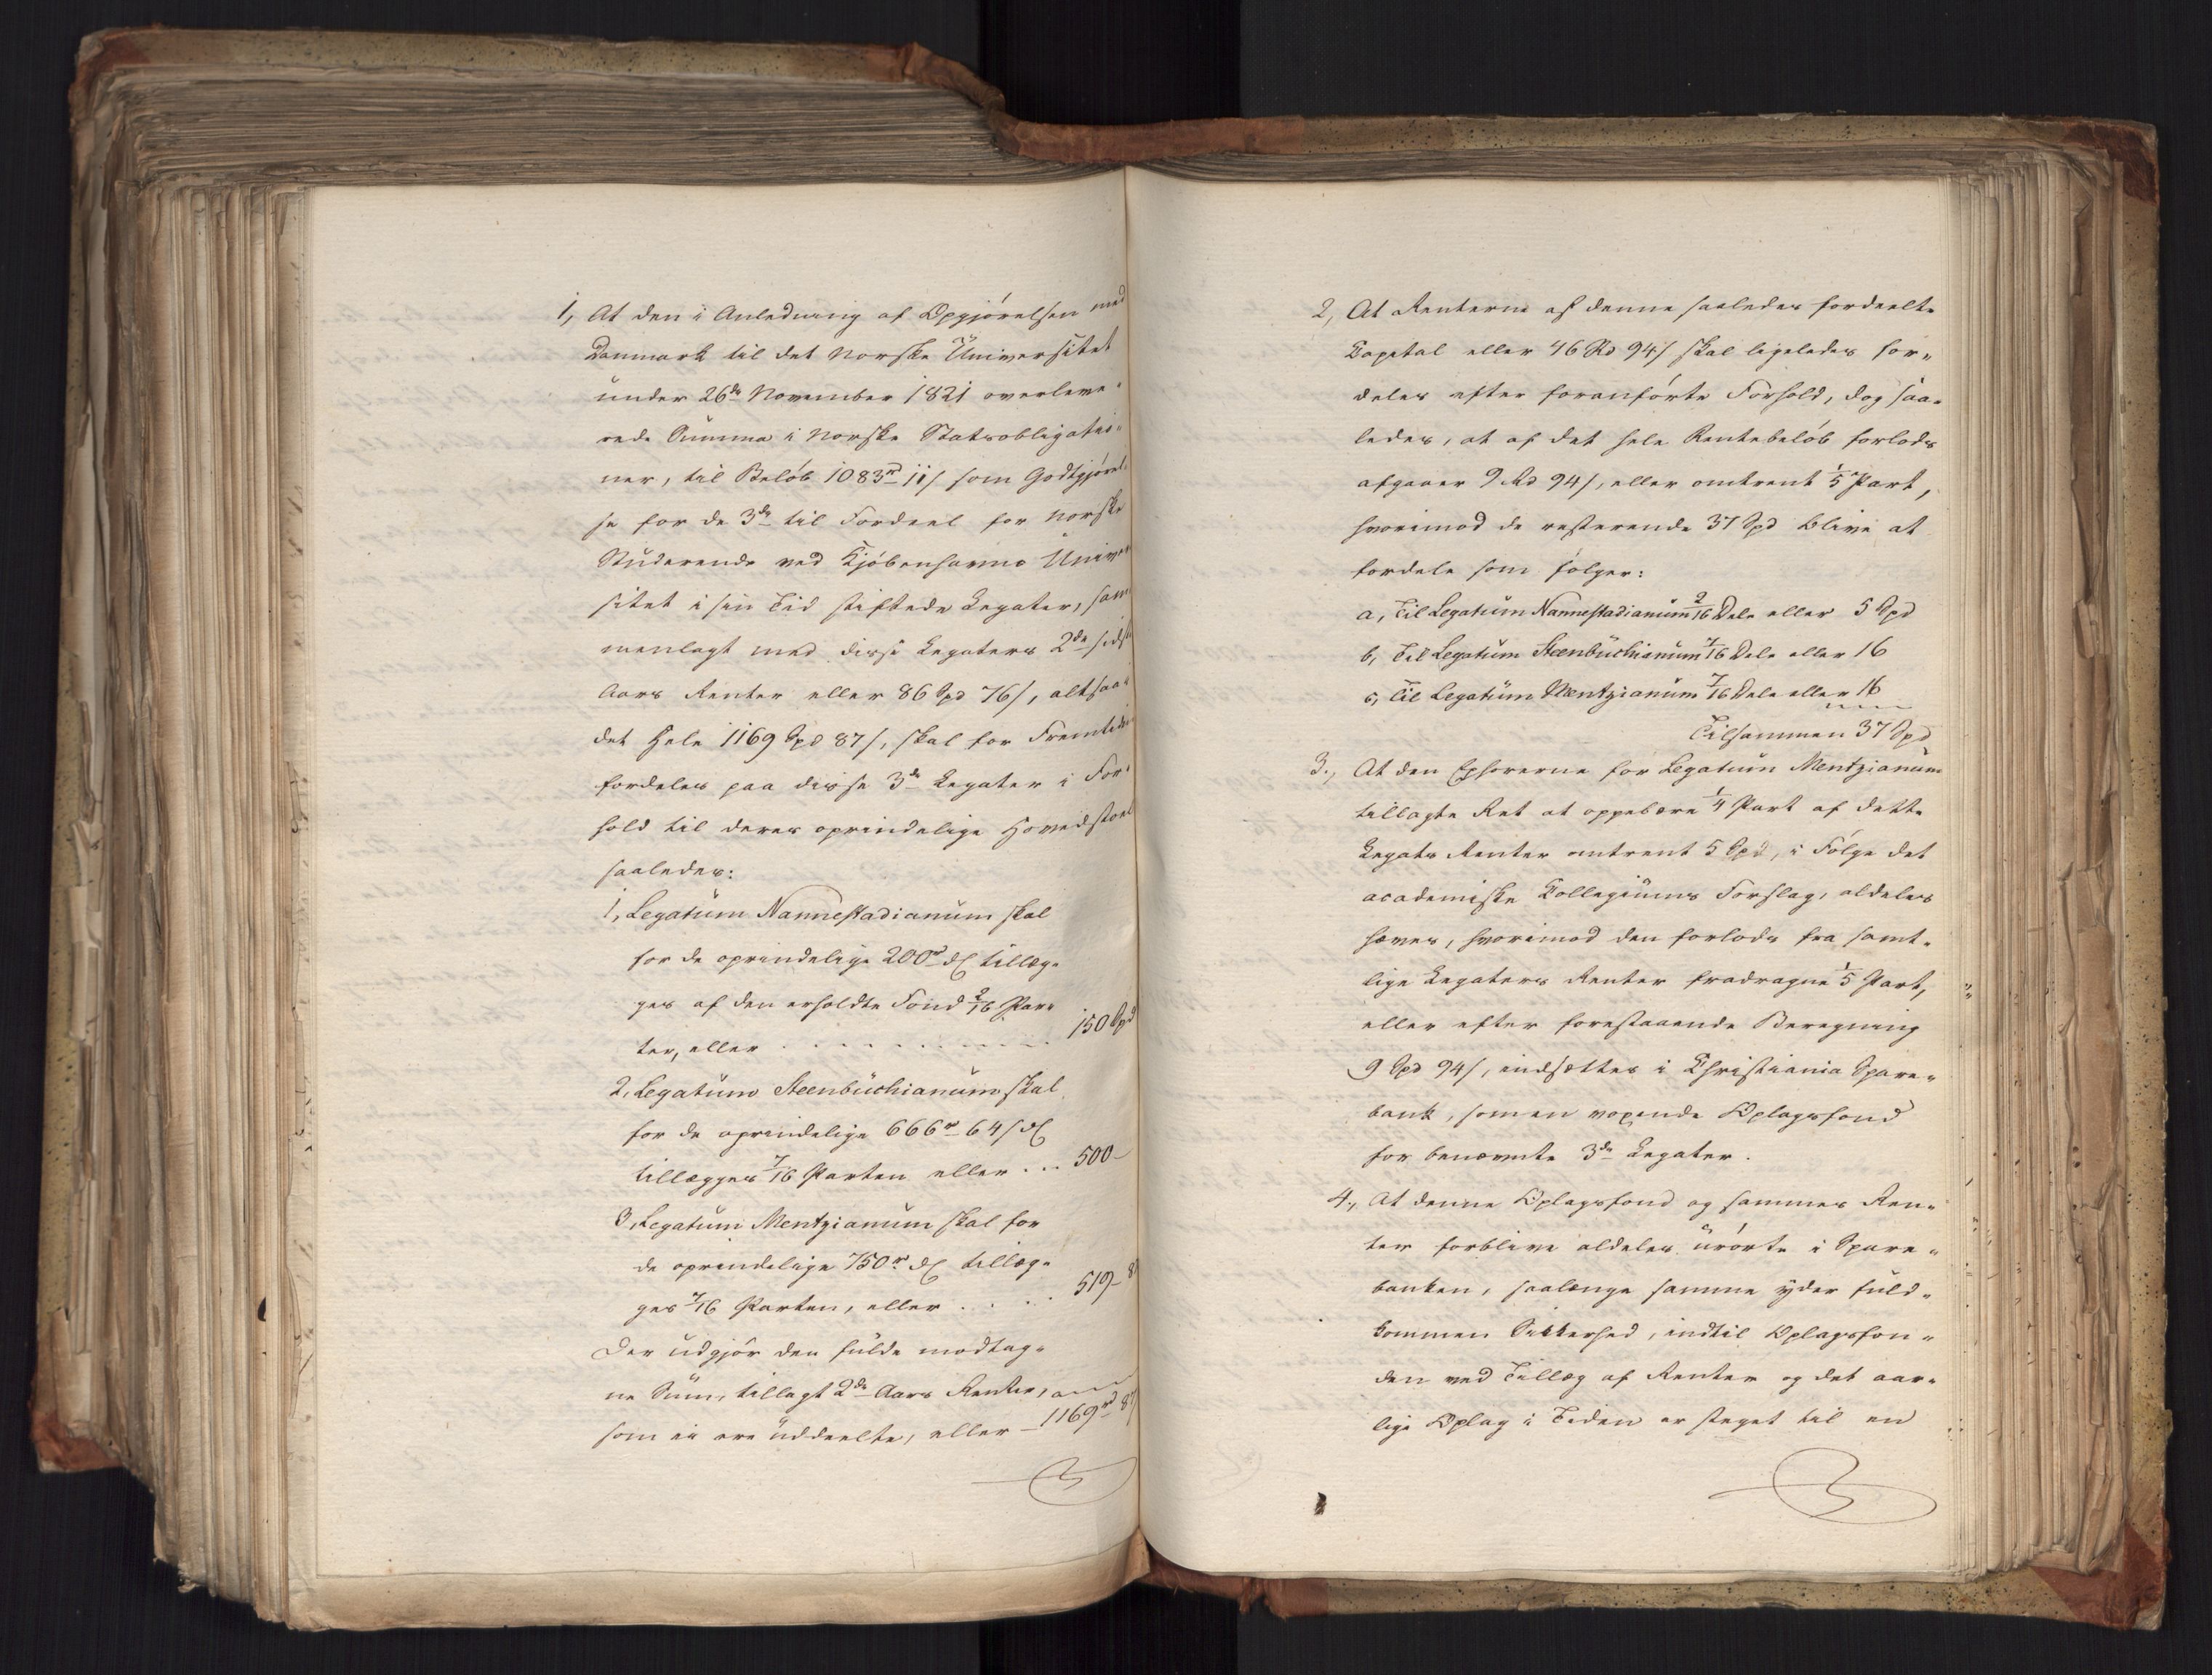 1, At den i Anledning af Opgjörelsen med
Danmark til det Norske Universitet
under 26de November 1821 overleve-
rede Summa i Norske Statsobligatio-
ner, til Beløb 1083rd 11/ som Godtgjörel-
se for de 3de til Fordeel for Norske
Studerende ved Kjöbenhavns Univer-
sitet i sin Tid stiftede Legater, sam
menlagt med disse Legaters 2de sidste
Aars Renter eller 86 Spd 76/, altsaa
det Hele 1169 Spd 87/, skal for Fremtiden
fordeles paa disse 3de Legater i For-
hold til deres oprindelige Hovedstoel
saaledes:
1, Legatum Nannestadianum skal
for de oprindelige 200rd dC tillæg-
ges af den erholdte Fond 2/16 Par-
ter, eller . . . . . . . . . . 150 Spd
2, Legatum Steenbuchianum skal
for de oprindelige 666rd 64/ dC
tillægges 7/16 Parten eller ... 500-
3, Legatum Mentzianum skal for
de oprindelige 750rd dC tillæg-
ges 7/16 Parten, eller . . . . 519- 87
Der udgjör den fulde modtag-
ne Sum, tillagt 2de Aars Renter,
som ei ere uddeelte, eller - 1169rd 87
2, At Renterne af denne saaledes fordeelte
Capital eller 46 Rd 94/ skal ligeledes for-
deles efter foranförte Forhold, dog saa-
ledes, at af det hele Rentebelöb forlods
afgaaer 9 Rd 94/, eller omtrent 1/5 Part,
hvorimod de resterende 37 Spd blive at
fordele som fölger:
a, Til Legatum Nannestadianum 2/16 Dele eller 5 Spd
b, Til Legatum Steenbuchianum 7/16 Dele eller 16
c, Til Legatum Mentzianum 7/16 Dele eller 16
Tilsammen 37 Spd
3., At den Ephorerne for Legatum Mentzianum
tillagte Ret at oppebære 1/4 Part af dette
Legats Renter omtrent 5 Spd, i Fölge det
academiske Collegiums Forslag, aldeles
hæves, hvorimod den forlods fra samt-
lige Legaters Renter fradragne 1/5 Part,
eller efter forestaaende Beregning
9 Spd 94/, indsættes i Christiania Spare-
bank, som en voxende Oplagsfond
for benævnte 3de Legater.
4., At denne Oplagsfond og sammes Ren-
ter forblive aldeles urörte i Spare-
banken, saalænge samme yder fuld-
kommen Sikkerhed, indtil Oplagsfon-
den ved Tillæg af Renter og det aar-
lige Oplag i Tiden er steget til en